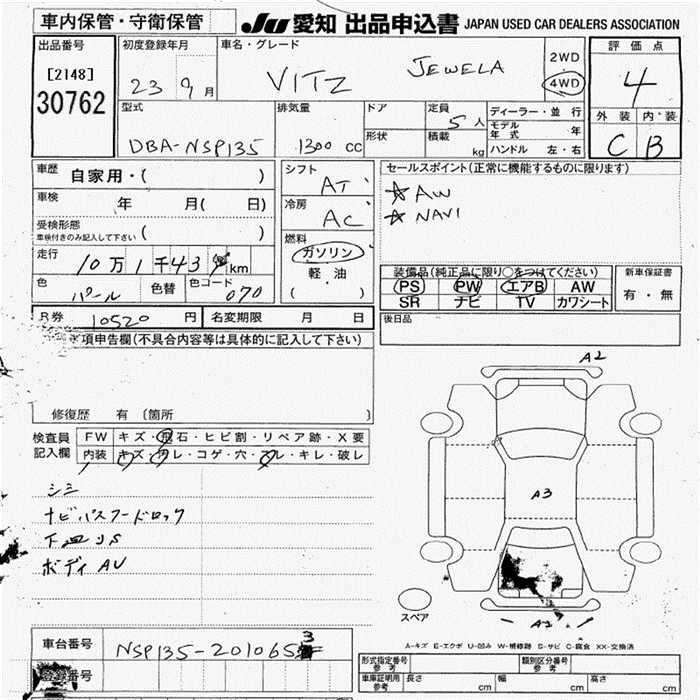 車内保管・守衛保管
JU 愛知 出品申込書 JAPAN USED CAR DEALERS ASSOCIATION
出品番号 初度登録年月 車名・グレード 評価点
[2148] 23 9月 VITZ JEWELA 2WD 4WD 4
30762
型式 排気量 ドア 定員 5人 ディーラー・並行 外装 内装
DBA-NSP135 1300 CC 形状 積載 kg モデル年式 年 C B
ハンドル 左・右
車歴 自家用・( ) シフト AT セールスポイント(正常に機能するものに限ります)
車検 年 月( 日) 冷房 AC ☆ AW
受検形態 ( ) ☆ NAVI
車検付きのみ記入して下さい
燃料 ガソリン 軽油 ( )
走行 10万1千43 km
装備品(純正品に限り○をつけてください) 新車保証書
色 パール 色替 色コード 070 PS PW エアB AW 有・無
SR ナビ TV カワシート
R券 10520円 名変期限 月 日 後日品
項申告欄(不具合内容等は具体的に記入して下さい)
A2
修復歴 有 〔箇所 〕
検査員 FW キズ・飛石・ヒビ割・リペア跡・X要
記入欄 内装 キズ・ワレ・コゲ・穴・スレ・キレ・破レ
シミ
A3
ナビパスワードロック
下廻りS
ボディAU
スペア
車台番号 NSP135-2010653
A-キズ E-エクボ U-凹み W-補修跡 S-サビ C-腐食 XX-交換済
登録番号 形式指定番号 参考 類別区分番号 参考
車庫証明用 参考 長さ cm 幅 cm 高さ cm